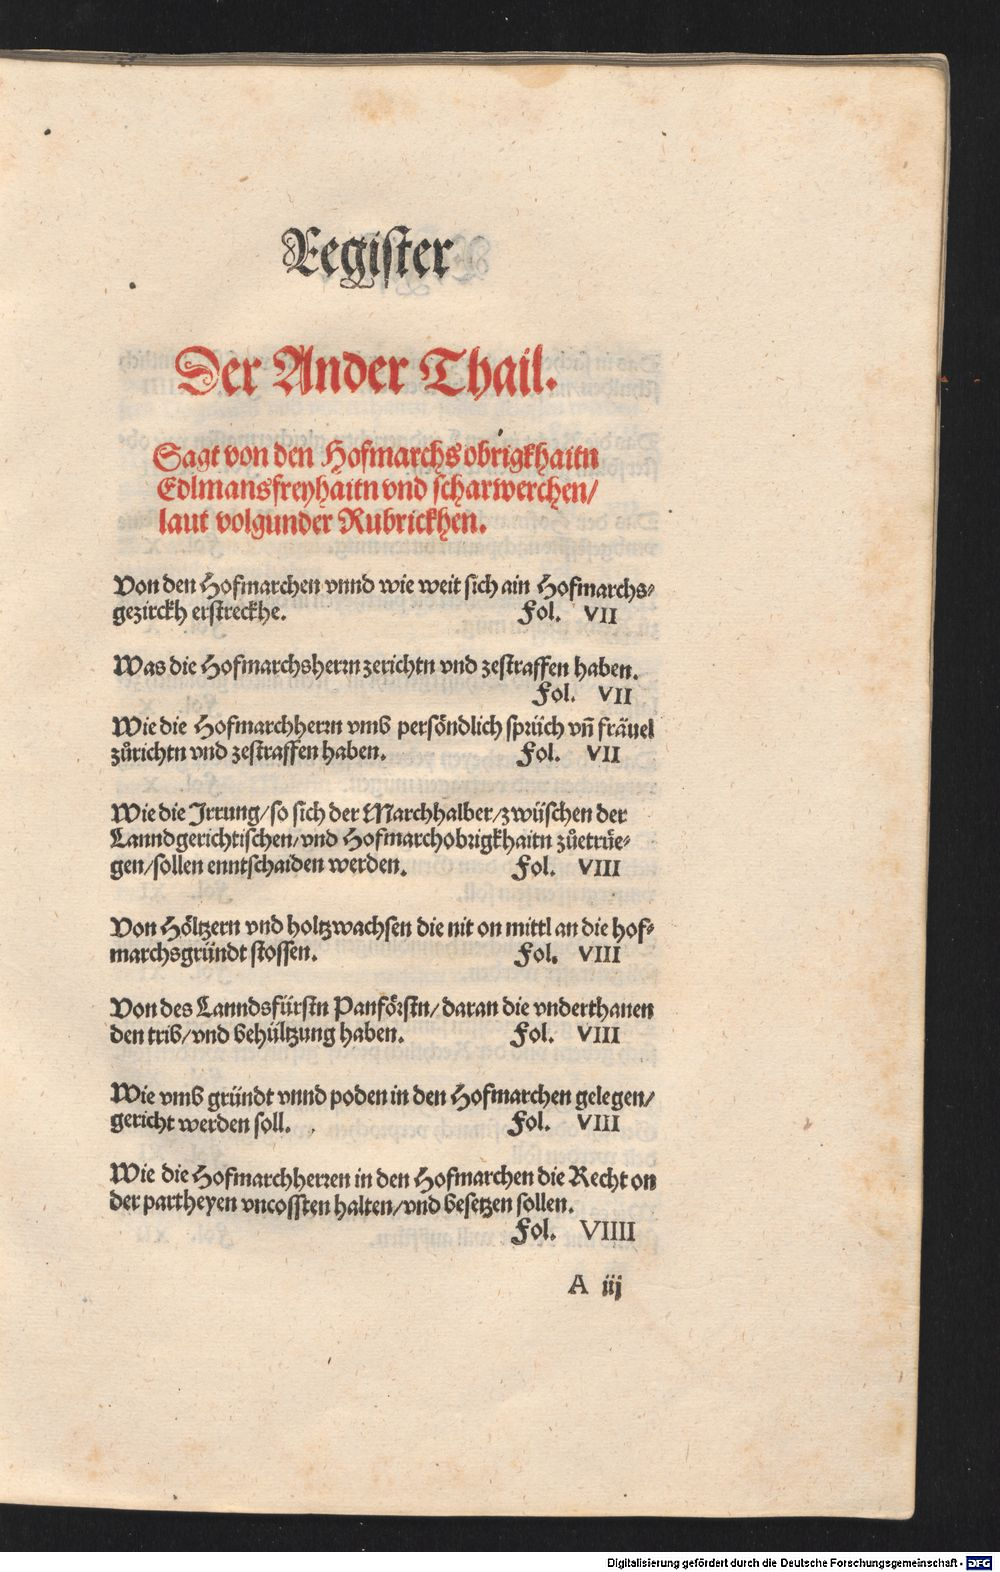 Register
Der Ander Thail.
Sagt von den Hofmarchs obrigkhaitn
Edlmansfreyhaitn vnd scharwerchen/
laut volgunder Rubrickhen.
Von den Hofmarchen vnnd wie weit sich ain Hofmarchs-
gezirckh erstreckhe. Fol. VII
Was die Hofmarchsherrn zerichtn vnd zestraffen haben.
Fol. VII
Wie die Hofmarchherrn vmb persöndlich sprüch vñ fräuel
zůrichtn vnd zestraffen haben. Fol. VII
Wie die Irrung/so sich der Marchhalber/zwüschen der
Lanndgerichtischen/vnd Hofmarchobrigkhaitn zůetrüe-
gen/sollen enntschaiden werden. Fol. VIII
Von Höltzern vnd holtzwachsen die nit on mittl an die hof-
marchsgründt stossen. Fol. VIII
Von des Lanndsfürstn Panförstn/daran die vnderthanen
den trib/vnd behültzung haben. Fol. VIII
Wie vmb gründt vnnd poden in den Hofmarchen gelegen/
gericht werden soll. Fol. VIII
Wie die Hofmarchherren in den Hofmarchen die Recht on
der partheyen vncossten halten/vnd besetzen sollen.
Fol. VIIII
A iij
Digitalisierung gefördert durch die Deutsche Forschungsgemeinschaft - DFG